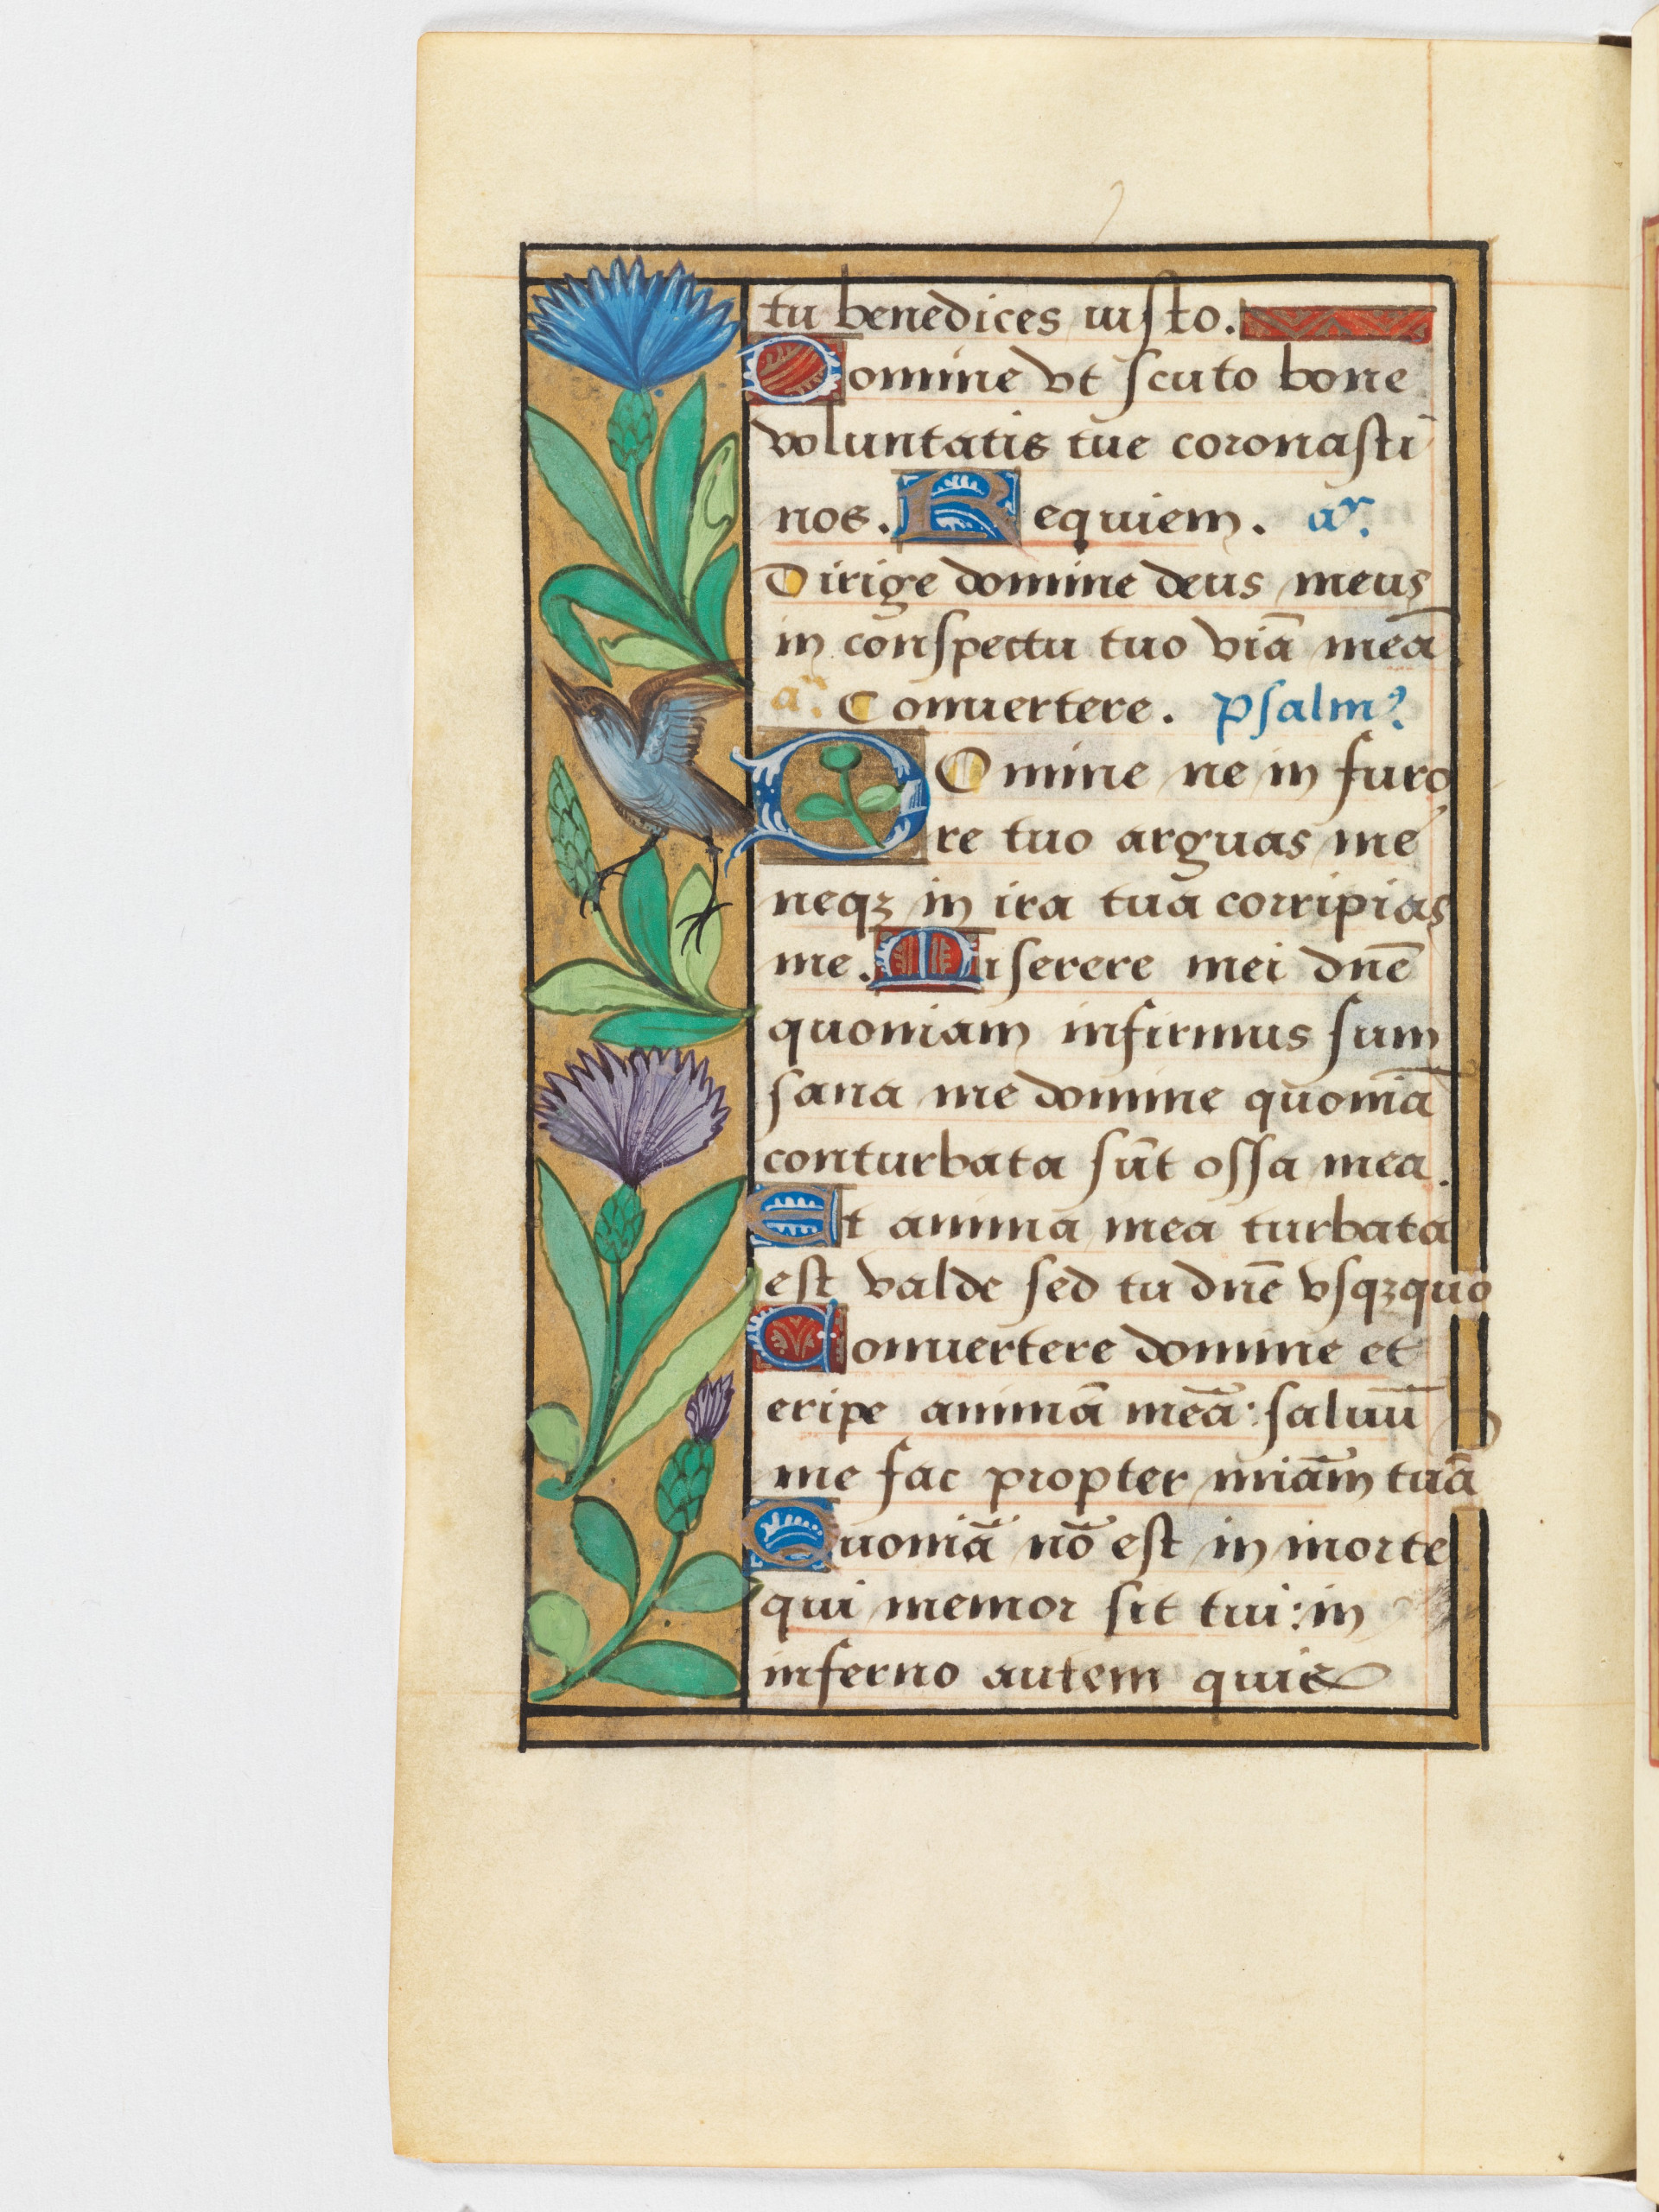 tu benedices iusto.
Domine vt scuto bone
voluntatis tue coronasti
nos. Requiem. an̄.
Dirige domine deus meus
in conspectu tuo viā meā
an̄. Conuertere. psalm⁹.
DOmine ne in furo
re tuo arguas me
neqꝫ in ira tua corripias
me. Miserere mei dn̄e
quoniam infirmus sum
sana me domine quoniā
conturbata sūt ossa mea.
Et anima mea turbata
est valde sed tu dn̄e vsqꝫquo
Conuertere domine et
eripe animā meā: saluū
me fac propter mīam tuā
Quoniā nō est in morte
qui memor sit tui: in
inferno autem quis